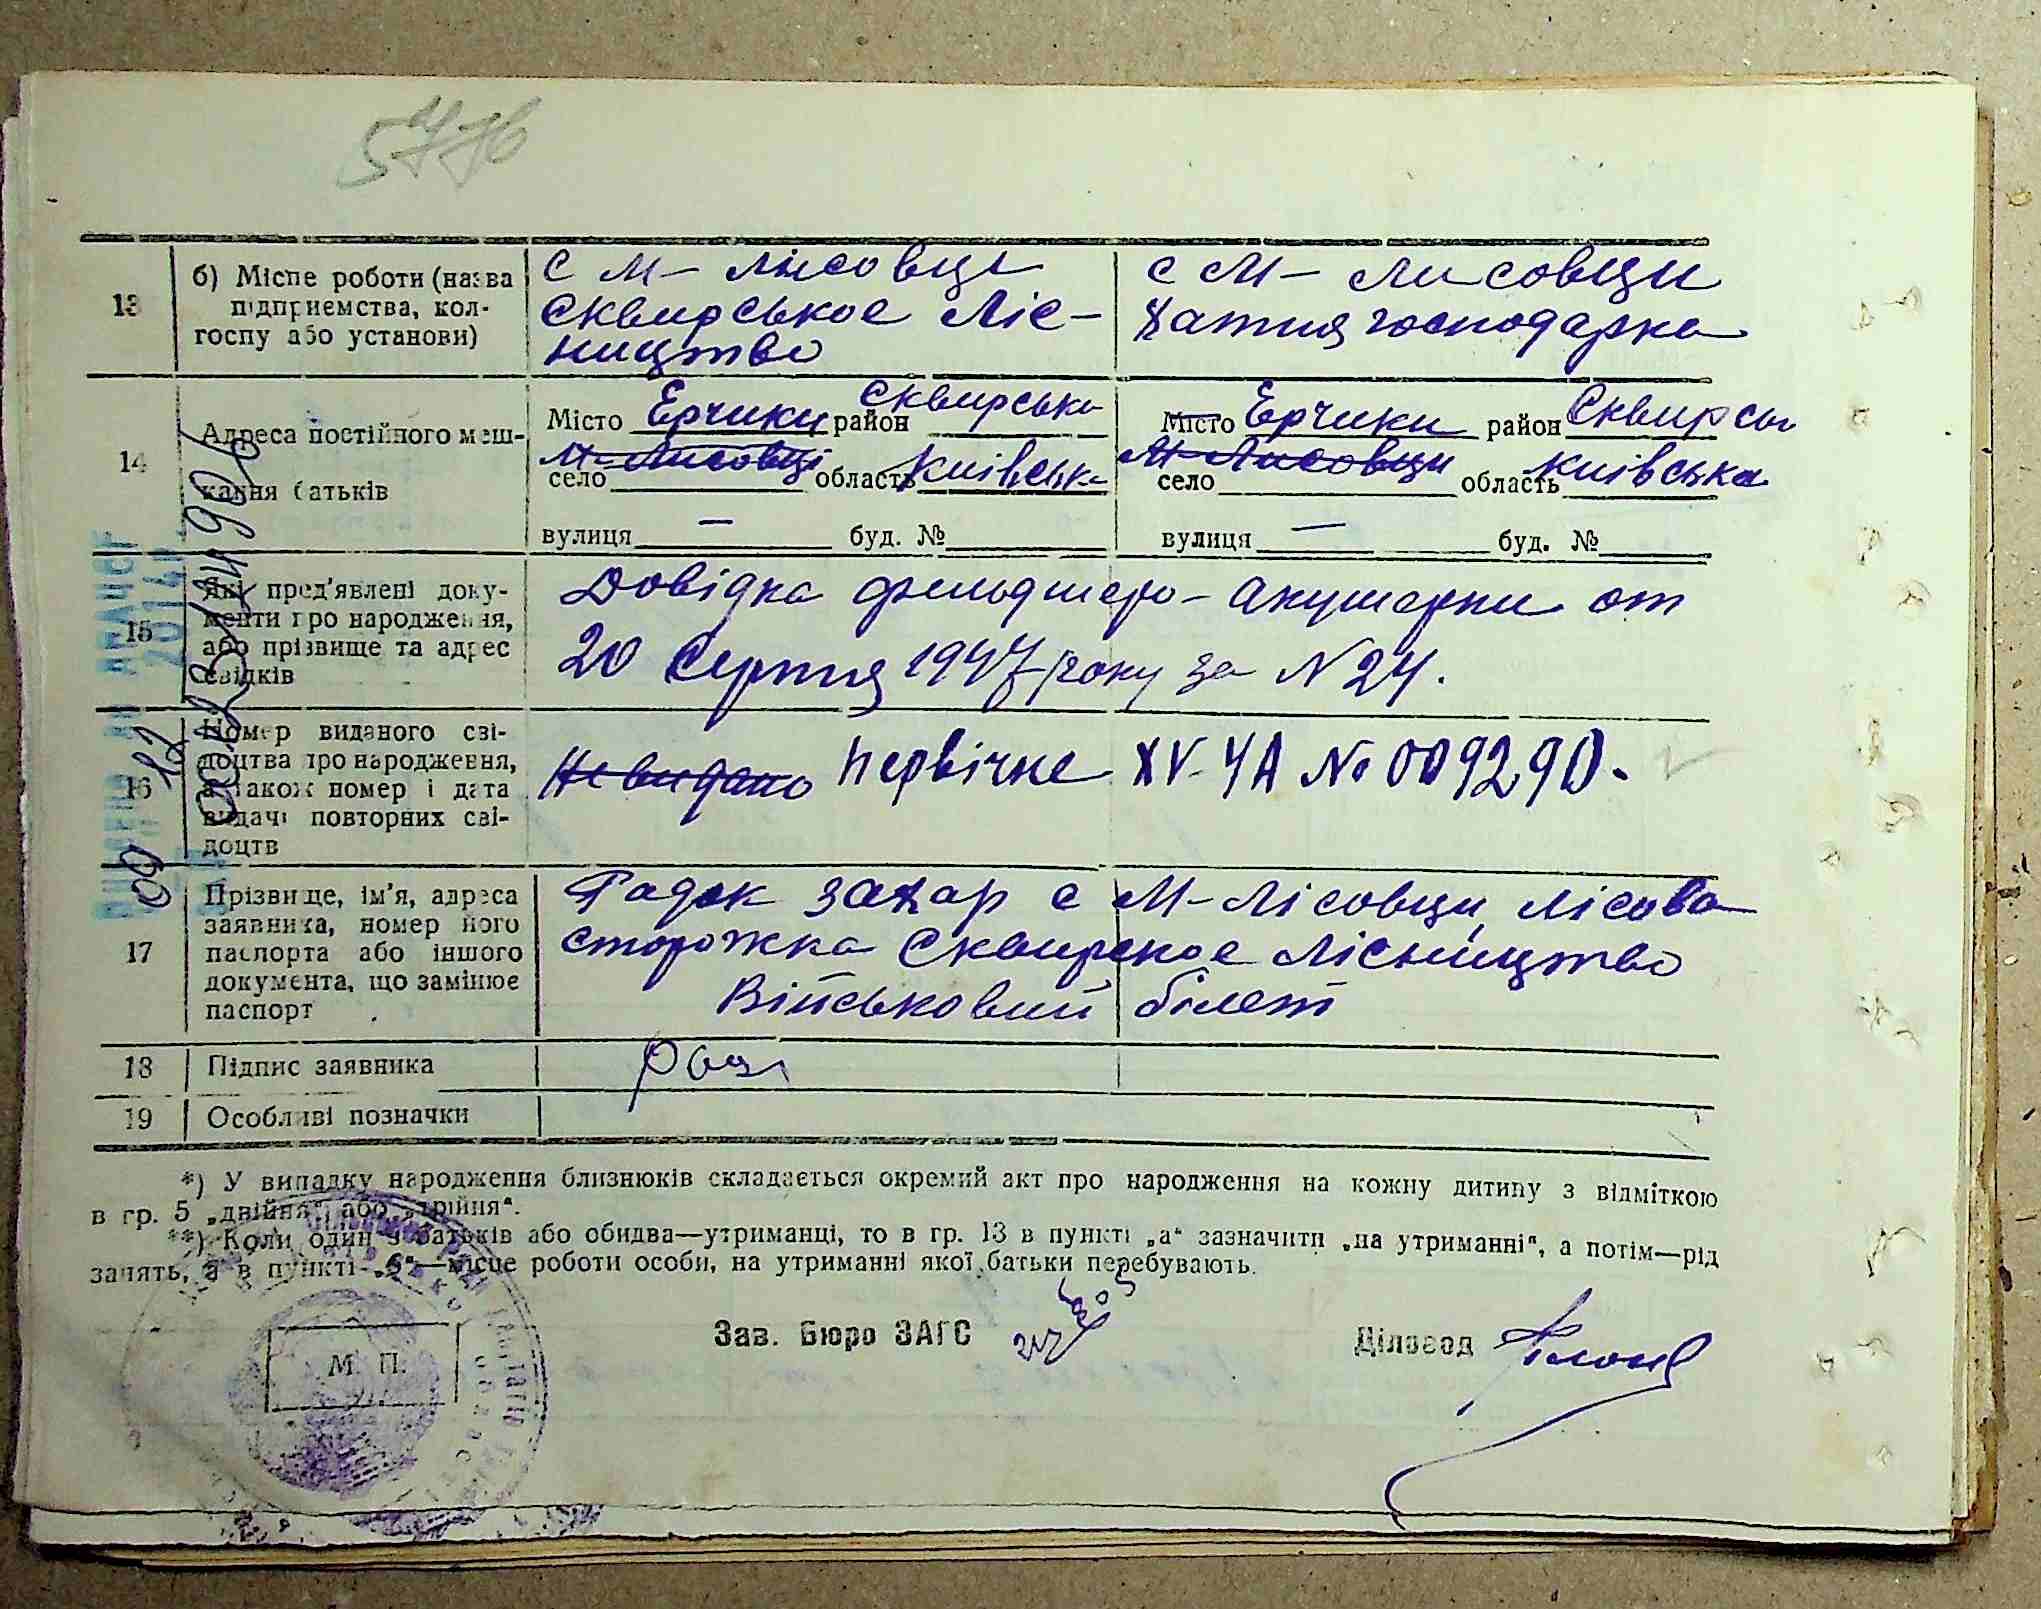 5776
13
б) Місце роботи (назва підприємства, колгоспу або установи)
с М- Лисовці
Сквирськое Ліс-
ництво
с М- Лисовци
хатня господарка
14
Адреса постійного мешкання батьків
Місто Ерчики район Сквирська
село М-Лисовці область Київська
вулиця — буд. №
Місто Ерчики район Сквирськ
село М-Лисовци область Київська
вулиця — буд. №
15
Які пред'явлені документи про народження, або прізвище та адрес свідків
Довідка фельдшеро-акушерки от
20 Серпня 1947 року за N 24.
16
Номер виданого свідоцтва про народження, а також номер і дата видачі повторних свідоцтв
Не видано Первічне XV-ЧА № 009290.
17
Прізвище, ім'я, адреса заявника, номер його паспорта або іншого документа, що замінює паспорт
Гадок Захар с М-Лісовци, лісова
сторожка Сквирское Лісництво
Військовий білет
18
Підпис заявника
19
Особливі позначки
*) У випадку народження близнюків складається окремий акт про народження на кожну дитину з відміткою
в гр. 5 „двійня“ або „трійня“.
**) Коли один з батьків або обидва—утриманці, то в гр. 13 в пункті „а“ зазначити „на утриманні“, а потім—рід
занять, а в пункті „б“—місце роботи особи, на утриманні якої батьки перебувають.
М. П.
Зав. Бюро ЗАГС
Діловод